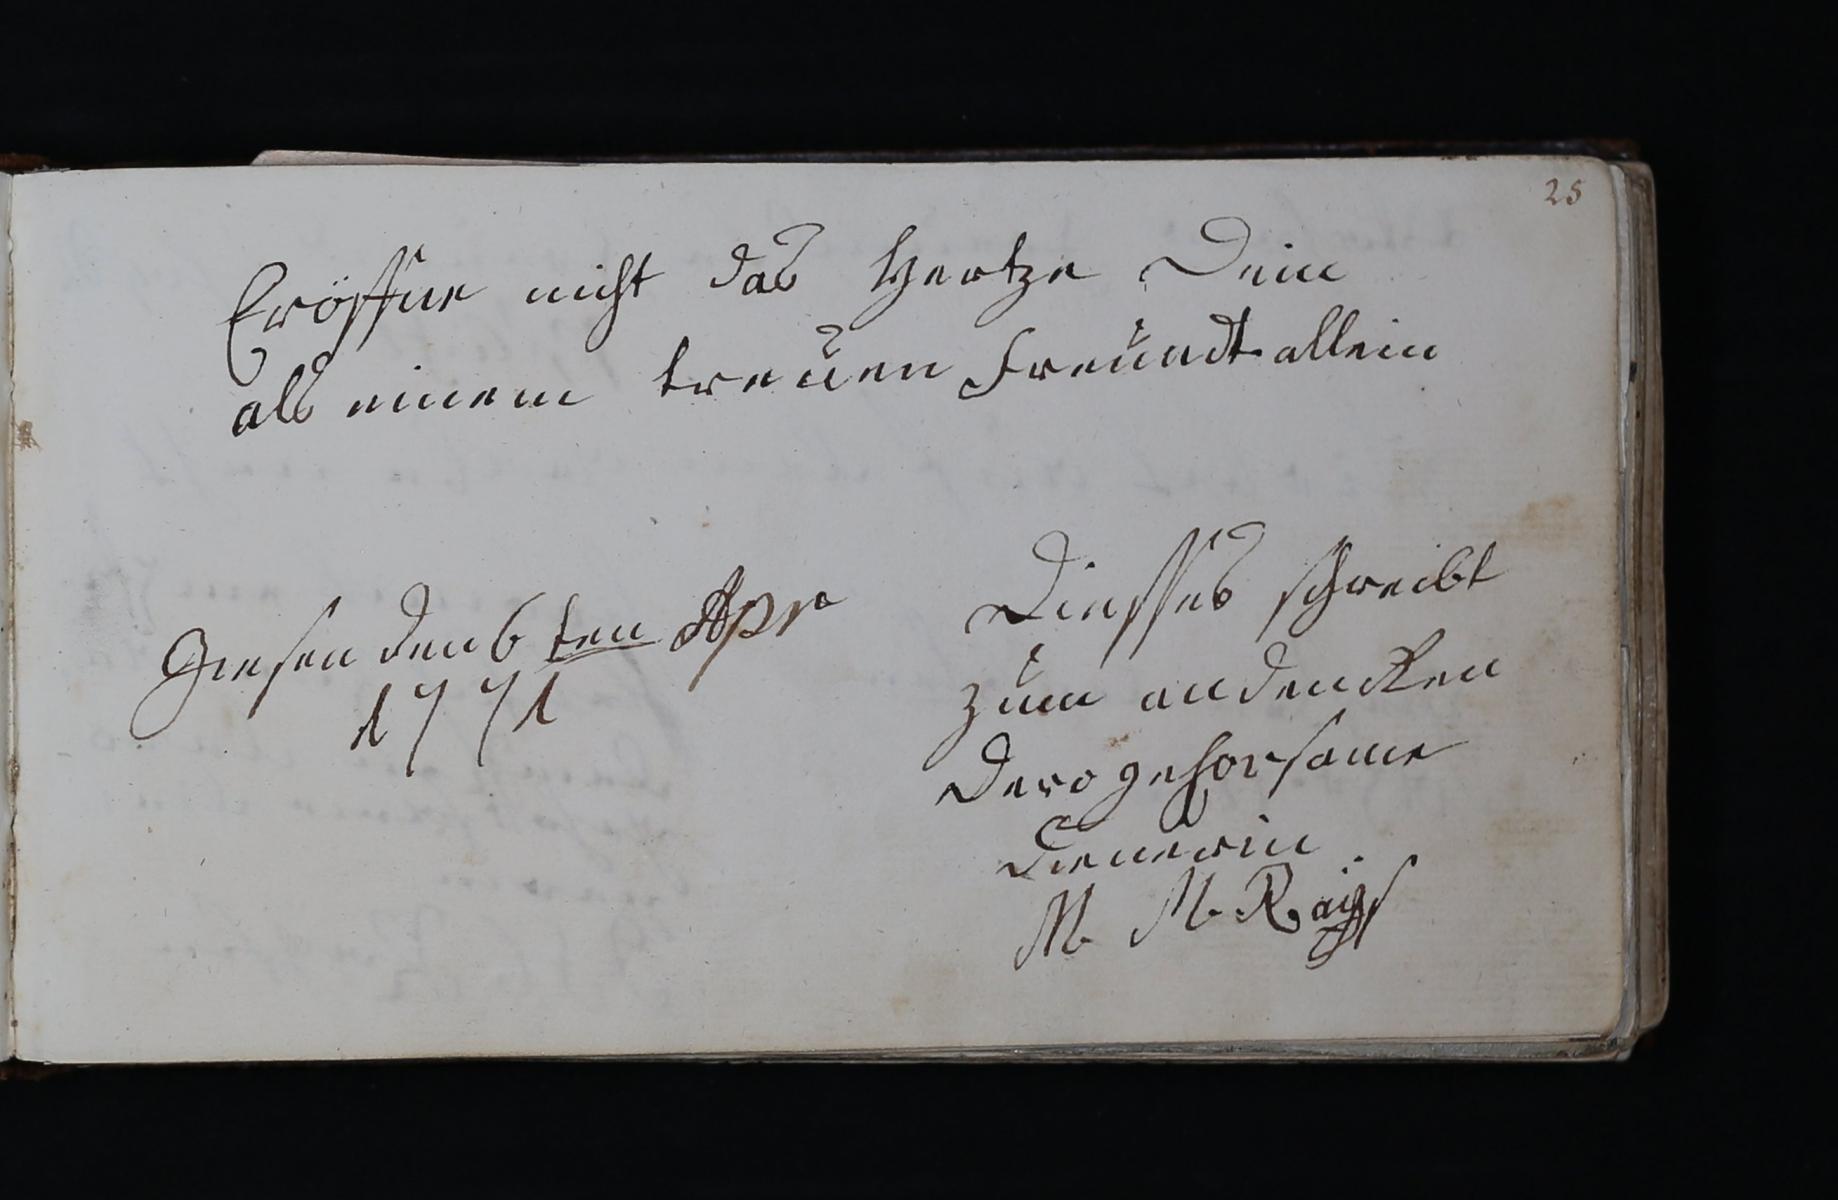 25
Eröffne nicht das Hertze Dein
als einem treuen Freundt allein
Giesen den 6ten Apr
1771
Diesses schreibt
zum andencken
Dero gehorsame
Dienerin
M. M. R